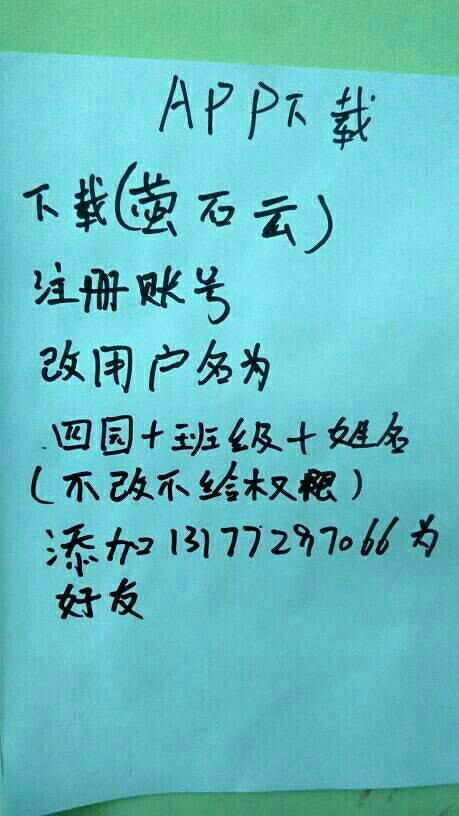 APP下载
下载(萤石云)
注册账号
改用户名为
四园+班级+姓名
(不改不给权限)
添加13177297066为
好友